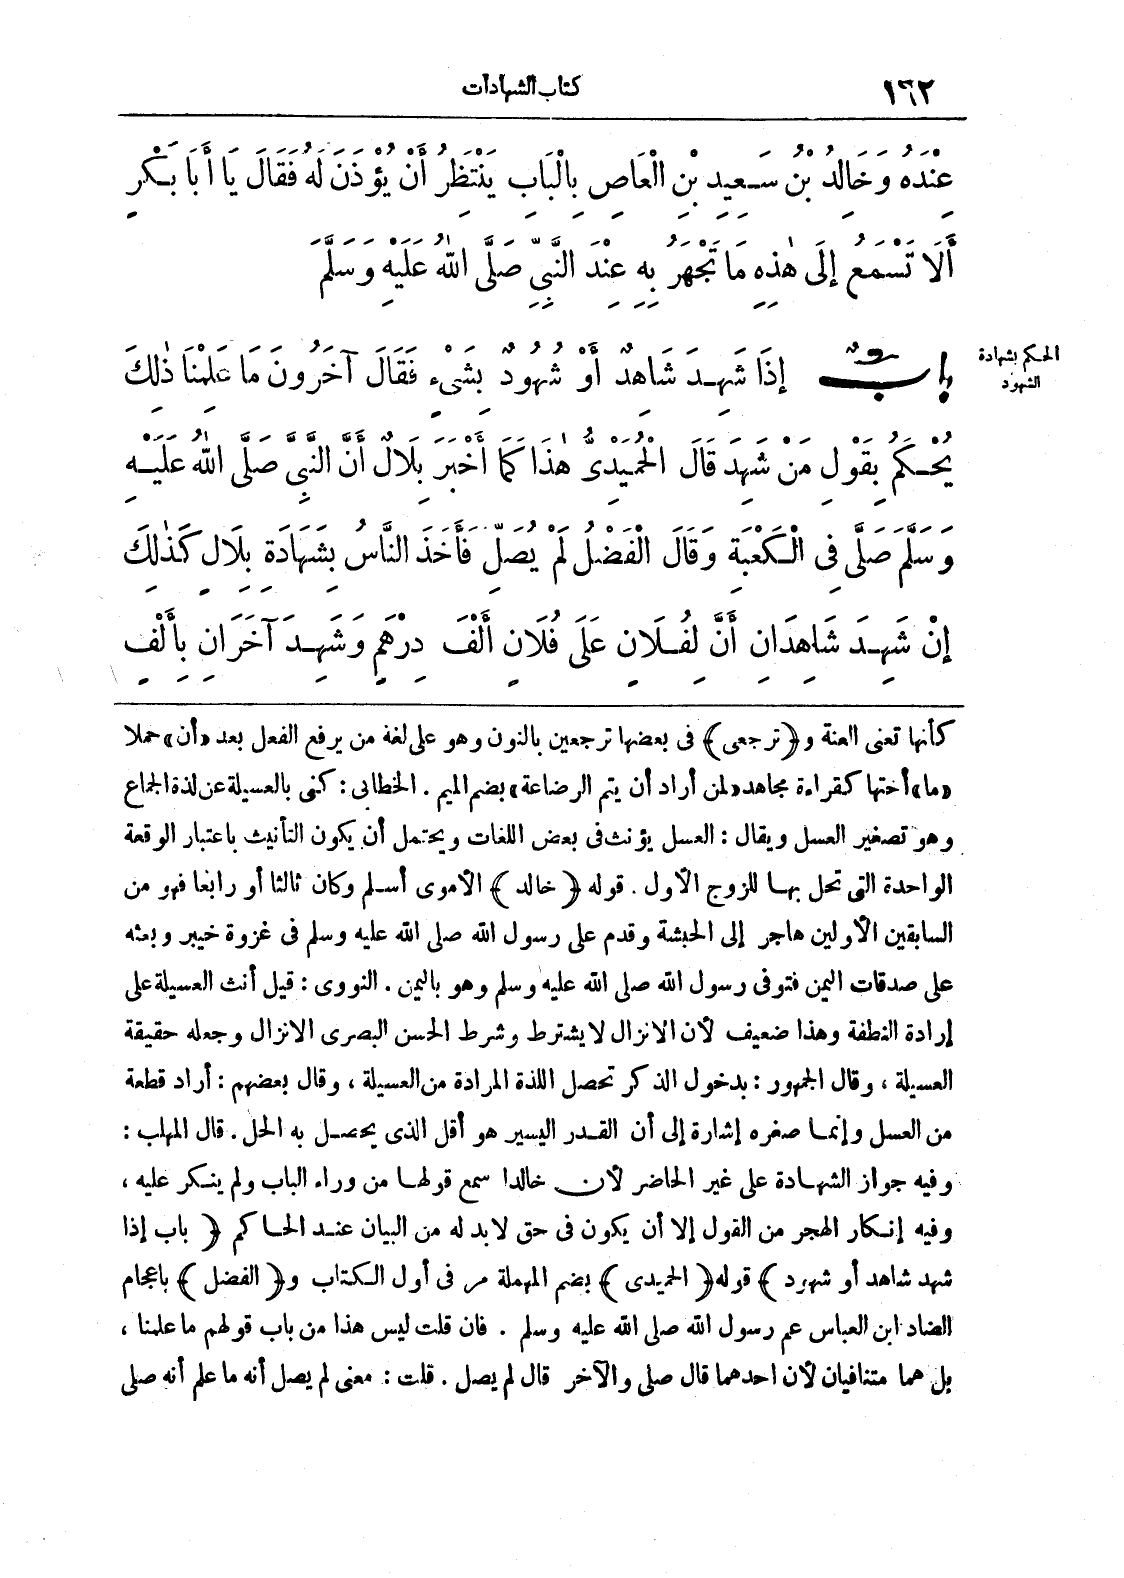 ١٦٢
كتاب الشهادات
عِنْدَهُ وَخَالِدُ بْنُ سَعِيدِ بْنِ الْعَاصِ بِالْبَابِ يَنْتَظِرُ أَنْ يُؤْذَنَ لَهُ فَقَالَ يَا أَبَا بَكْرٍ
أَلَا تَسْمَعُ إِلَى هٰذِهِ مَا تَجْهَرُ بِهِ عِنْدَ النَّبِيِّ صَلَّى اللهُ عَلَيْهِ وَسَلَّمَ
الحكم بشهادة
الشهود
بابٌ إِذَا شَهِدَ شَاهِدٌ أَوْ شُهُودٌ بِشَىْءٍ فَقَالَ آخَرُونَ مَا عَلِمْنَا ذٰلِكَ
يُحْكَمُ بِقَوْلِ مَنْ شَهِدَ قَالَ الْحُمَيْدِىُّ هٰذَا كَمَا أَخْبَرَ بِلَالٌ أَنَّ النَّبِىَّ صَلَّى اللهُ عَلَيْهِ
وَسَلَّمَ صَلَّى فِى الْكَعْبَةِ وَقَالَ الْفَضْلُ لَمْ يُصَلِّ فَأَخَذَ النَّاسُ بِشَهَادَةِ بِلَالٍ كَذٰلِكَ
إِنْ شَهِدَ شَاهِدَانِ أَنَّ لِفُلَانٍ عَلَى فُلَانٍ أَلْفَ دِرْهَمٍ وَشَهِدَ آخَرَانِ بِأَلْفٍ
كأنها تعنى العنة و﴿ترجعى﴾ فى بعضها ترجعين بالنون وهو على لغة من يرفع الفعل بعد «أن» حملا
«ما» أختها كقراءة مجاهد «لمن أراد أن يتم الرضاعة» بضم الميم . الخطابى : كنى بالعسيلة عن لذة الجماع
وهو تصغير العسل ويقال : العسل يؤنث فى بعض اللغات ويحتمل أن يكون التأنيث باعتبار الوقعة
الواحدة التى تحل بها للزوج الأول . قوله ﴿خالد﴾ الأموى أسلم وكان ثالثا أو رابعا فهو من
السابقين الأولين هاجر إلى الحبشة وقدم على رسول الله صلى الله عليه وسلم فى غزوة خيبر وبعثه
على صدقات اليمن فتوفى رسول الله صلى الله عليه وسلم وهو باليمن . النووى : قيل أنث العسيلة على
إرادة النطفة وهذا ضعيف لأن الانزال لا يشترط وشرط الحسن البصرى الانزال وجعله حقيقة
العسيلة ، وقال الجمهور : بدخول الذكر تحصل اللذة المرادة من العسيلة ، وقال بعضهم : أراد قطعة
من العسل وإنما صغره إشارة إلى أن القدر اليسير هو أقل الذى يحصل به الحل . قال المهلب :
وفيه جواز الشهادة على غير الحاضر لأن خالدا سمع قولها من وراء الباب ولم ينكر عليه ،
وفيه إنكار الهجر من القول إلا أن يكون فى حق لابد له من البيان عند الحاكم ﴿ باب إذا
شهد شاهد أو شهود ﴾ قوله ﴿ الحميدى ﴾ بضم المهملة مر فى أول الكتاب و﴿ الفضل ﴾ باعجام
الضاد ابن العباس عم رسول الله صلى الله عليه وسلم . فان قلت ليس هذا من باب قولهم ما علمنا ،
بل هما متنافيان لأن احدهما قال صلى والآخر قال لم يصل . قلت : معنى لم يصل أنه ما علم أنه صلى